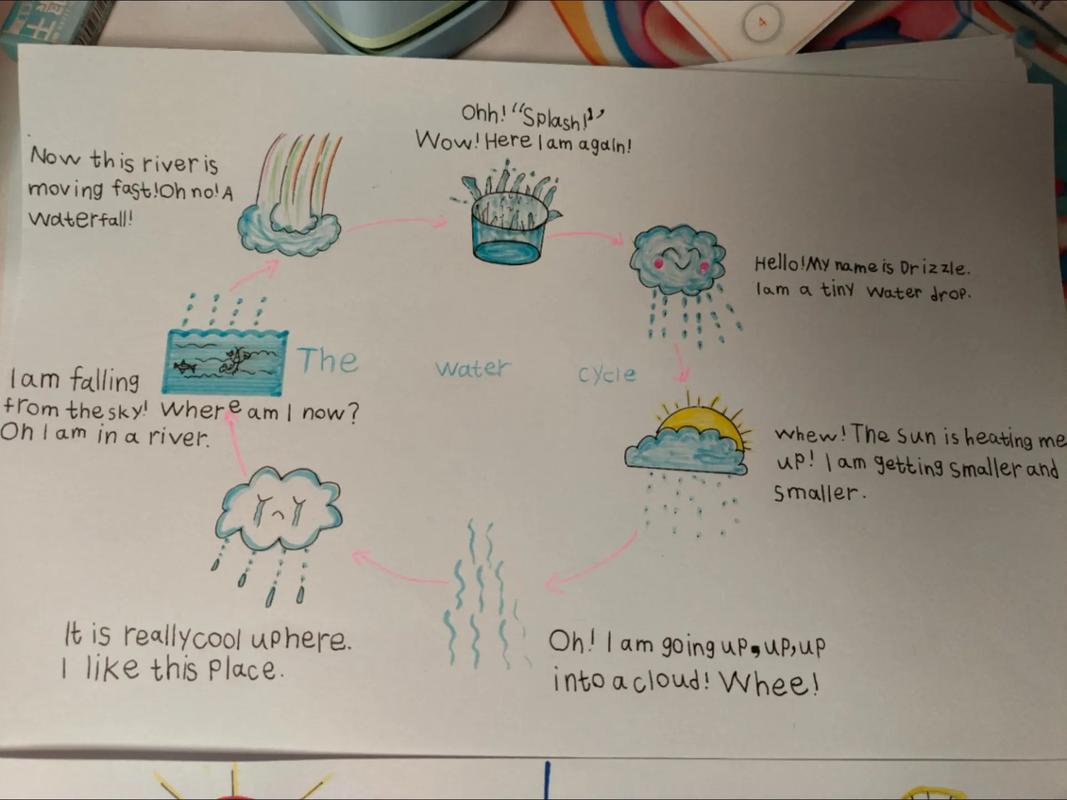 Ohh! "Splash!"
Wow! Here I am again!
Now this river is
moving fast! Oh no! A
waterfall!
Hello! My name is Drizzle.
I am a tiny water drop.
The water cycle
I am falling
from the sky! Where am I now?
Oh I am in a river.
whew! The Sun is heating me
up! I am getting smaller and
smaller.
It is really cool up here.
I like this place.
Oh! I am going up, up, up
into a cloud! Whee!
4